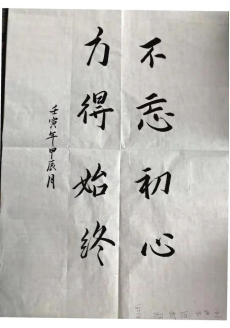 不忘初心
方得始终
壬寅年甲辰月